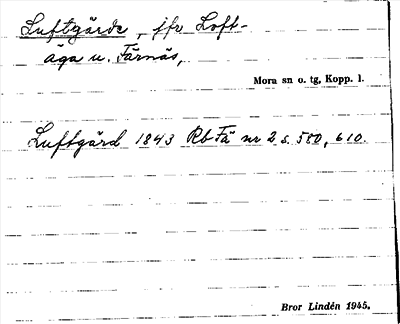 Luftgärde, jfr Loft-
äga u. Färnäs,
Mora sn o. tg, Kopp. l.
Luftgärd 1843 Rb Fä nr 2 s. 580, 610.
Bror Lindén 1945.